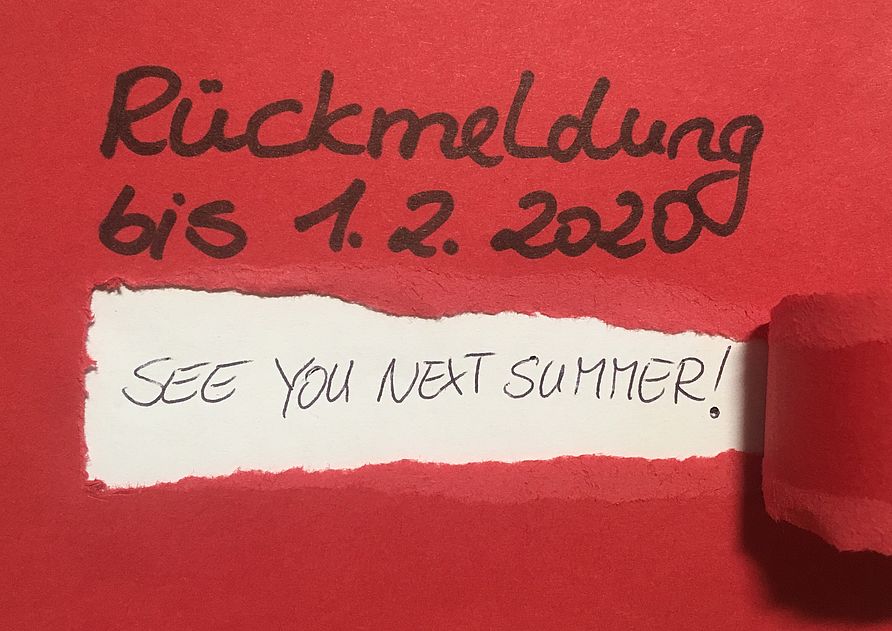 Rückmeldung
bis 1.2.2020
SEE YOU NEXT SUMMER!